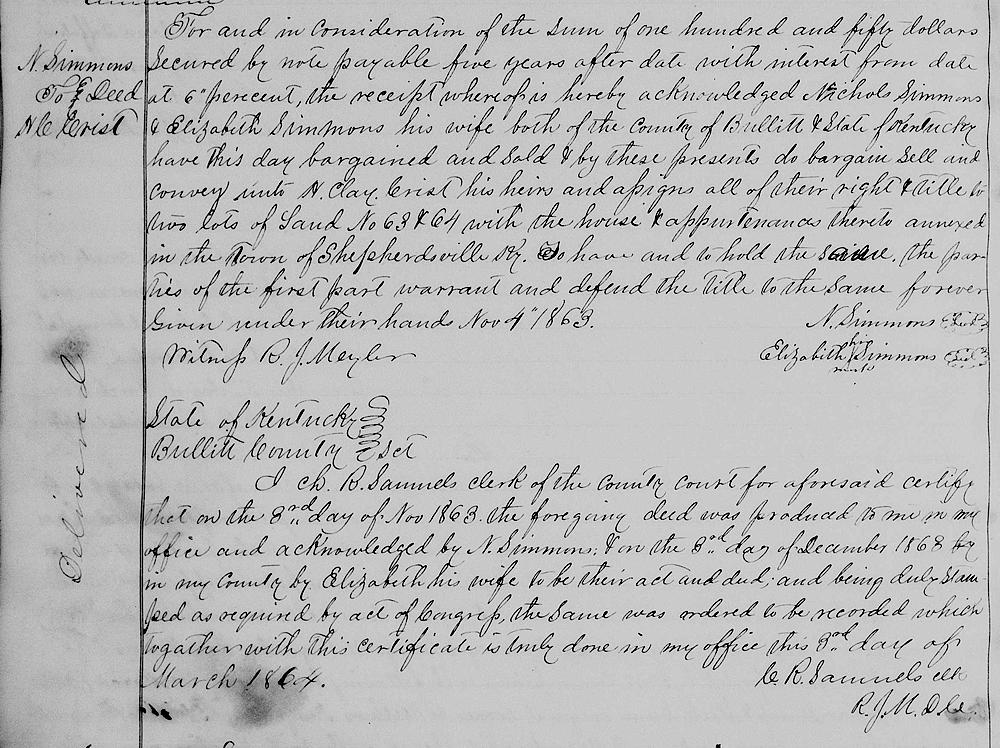 N. Simmons
To } Deed
H C Crist
For and in consideration of the sum of one hundred and fifty dollars
Secured by note payable five years after date with interest from date
at 6" percent, the receipt whereof is hereby acknowledged Nichols Simmons
& Elizabeth Simmons his wife both of the County of Bullitt & State of Kentucky
have this day bargained and sold & by these presents do bargain sell and
convey unto H. Clay. Crist his heirs and assigns all of their right & title to
two lots of Land No 63 & 64 with the house & appurtenances thereto annexed
in the Town of Shepherdsville Ky. To have and to hold the same, the par-
ties of the first part warrant and defend the title to the same forever
Given under their hands Nov 4" 1863.
N. Simmons
Witness R. J. Meyler
Elizabeth her Simmons
mark
Delivered
State of Kentucky
Bullitt County } Sct
I Ch. R. Samuels clerk of the County court for aforesaid certify
that on the 3rd day of Nov 1863. the foregoing deed was produced to me in my
office and acknowledged by N. Simmons; & on the 3rd day of December 1863 by
in my County by Elizabeth his wife to be their act and deed; and being duly stam-
ped as required by act of Congress, the same was ordered to be recorded which
together with this certificate is truly done in my office this 3rd day of
March 1864.
C. R. Samuels clk
R. J. M. D.C.